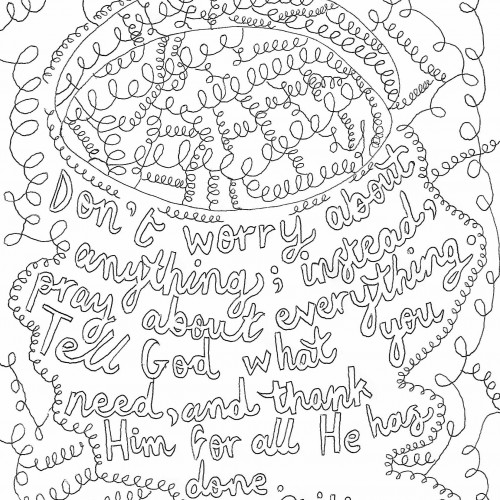 Don't worry about
anything; instead,
pray about everything.
Tell God what you
need, and thank
Him for all He has
done.